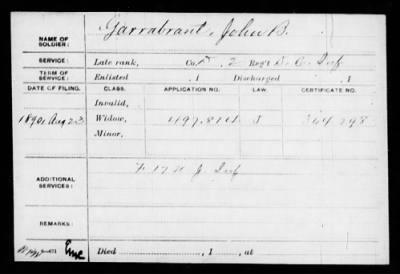 NAME OF SOLDIER: Garrabrant, John B.
SERVICE: Late rank, Co. 2 Reg't D. C. Inf
TERM OF SERVICE: Enlisted , 1 Discharged , 1
DATE OF FILING. CLASS. APPLICATION NO. LAW. CERTIFICATE NO.
Invalid,
1890, Aug 23 Widow, J 364 298
Minor,
ADDITIONAL SERVICES: F 17 N J Inf
REMARKS:
Died , 1 , at